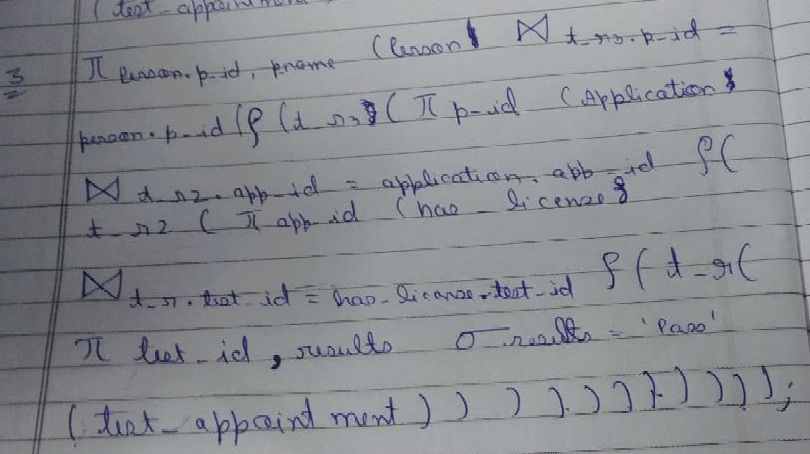 (test_appointment
3 π person.p-id, pname (person ⋈ t_r3.p-id =
person.p-id (ρ (t_r3 ( π p-id (Application
⋈ t_r2.app-id = application.app-id ρ(
t_r2 ( π app id (has _ license
⋈ t_r.test_id = has_license.test_id ρ ( t_r(
π test_id, results σ results = 'Pass'
(test_appointment ) ) ) ) ) ) ) ) ) ) );